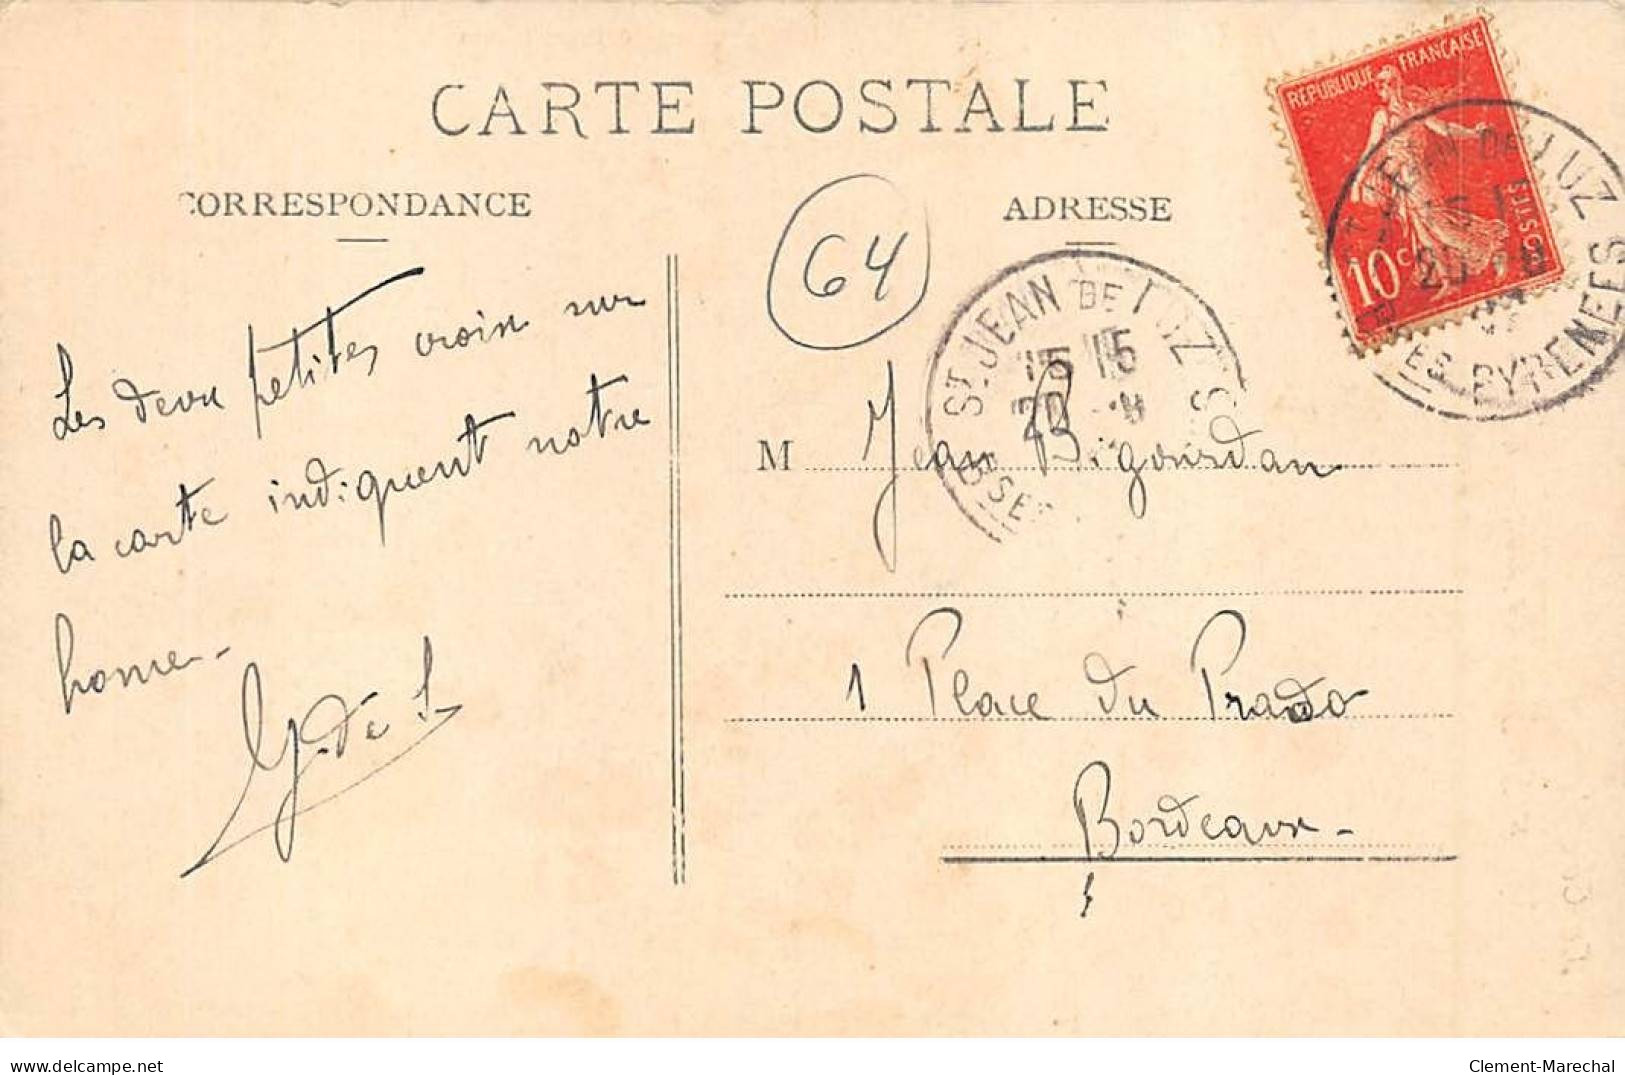 CARTE POSTALE
CORRESPONDANCE
ADRESSE
RÉPUBLIQUE FRANÇAISE
10c
POSTES
ST JEAN DE LUZ
15 15
20
BSES
JEAN DE LUZ
20
BSES PYRENEES
64
Les deux petites croix sur
la carte indiquent notre
home -
G. de L.
M Jean Bigourdan
1 Place du Prado
Bordeaux -
delcampe.net
Clement-Marechal